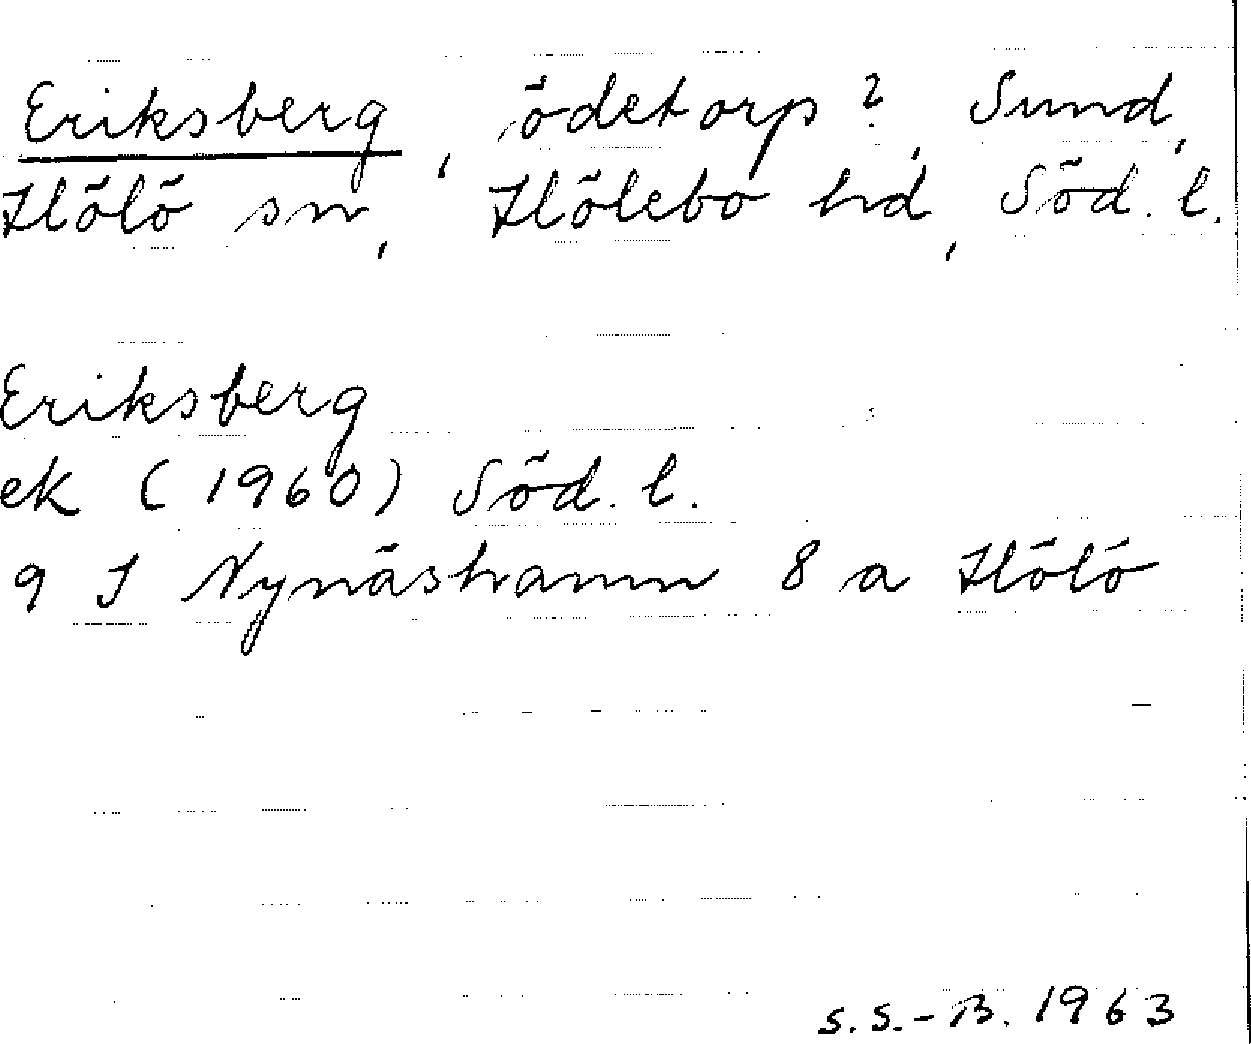 Eriksberg, ödetorp?, Sund,
Hölö sn, Hölebo hd, Söd. l.
Eriksberg
ek (1960) Söd. l.
9 I Nynäshamn 8 a Hölö
S.S.-B. 1963